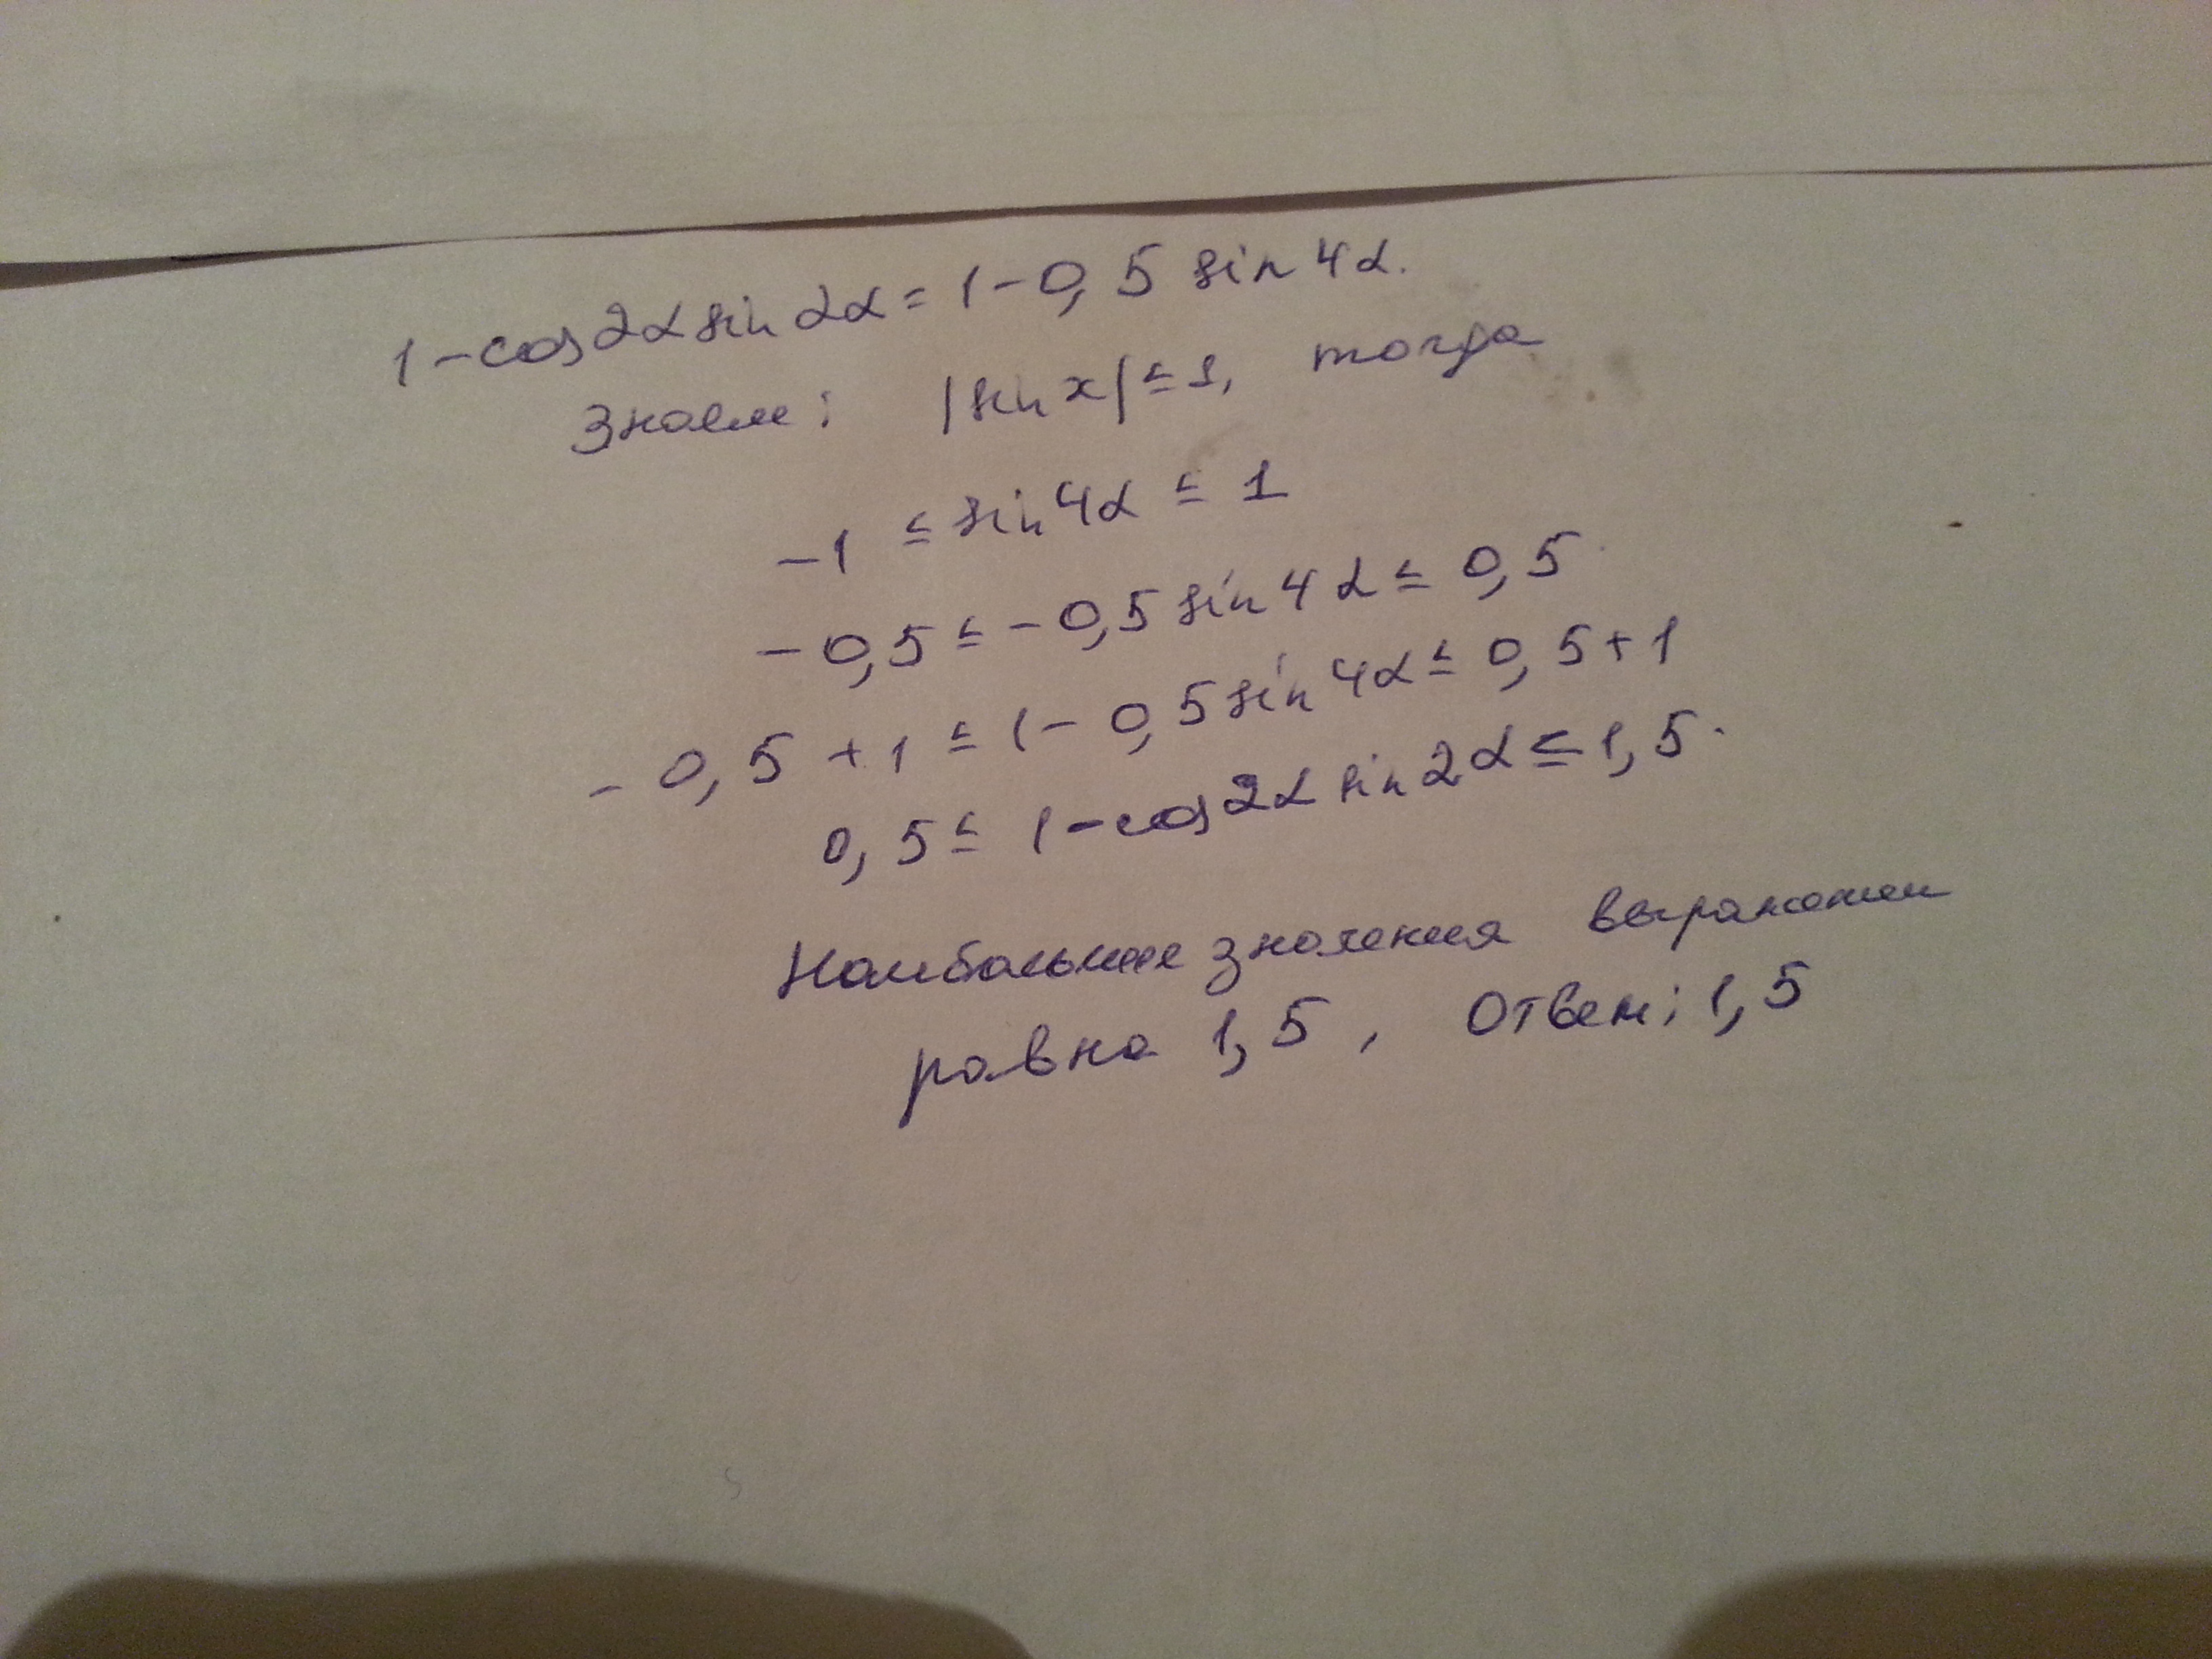 1-cos2αsin2α=1-0,5sin4α.
Знаем: |sin x|≤1, тогда
-1≤sin4α≤1
-0,5≤-0,5sin4α≤0,5
-0,5+1≤1-0,5sin4α≤0,5+1
0,5≤1-cos2αsin2α≤1,5.
Наибольшее значения выражении
равно 1,5, Ответ: 1,5